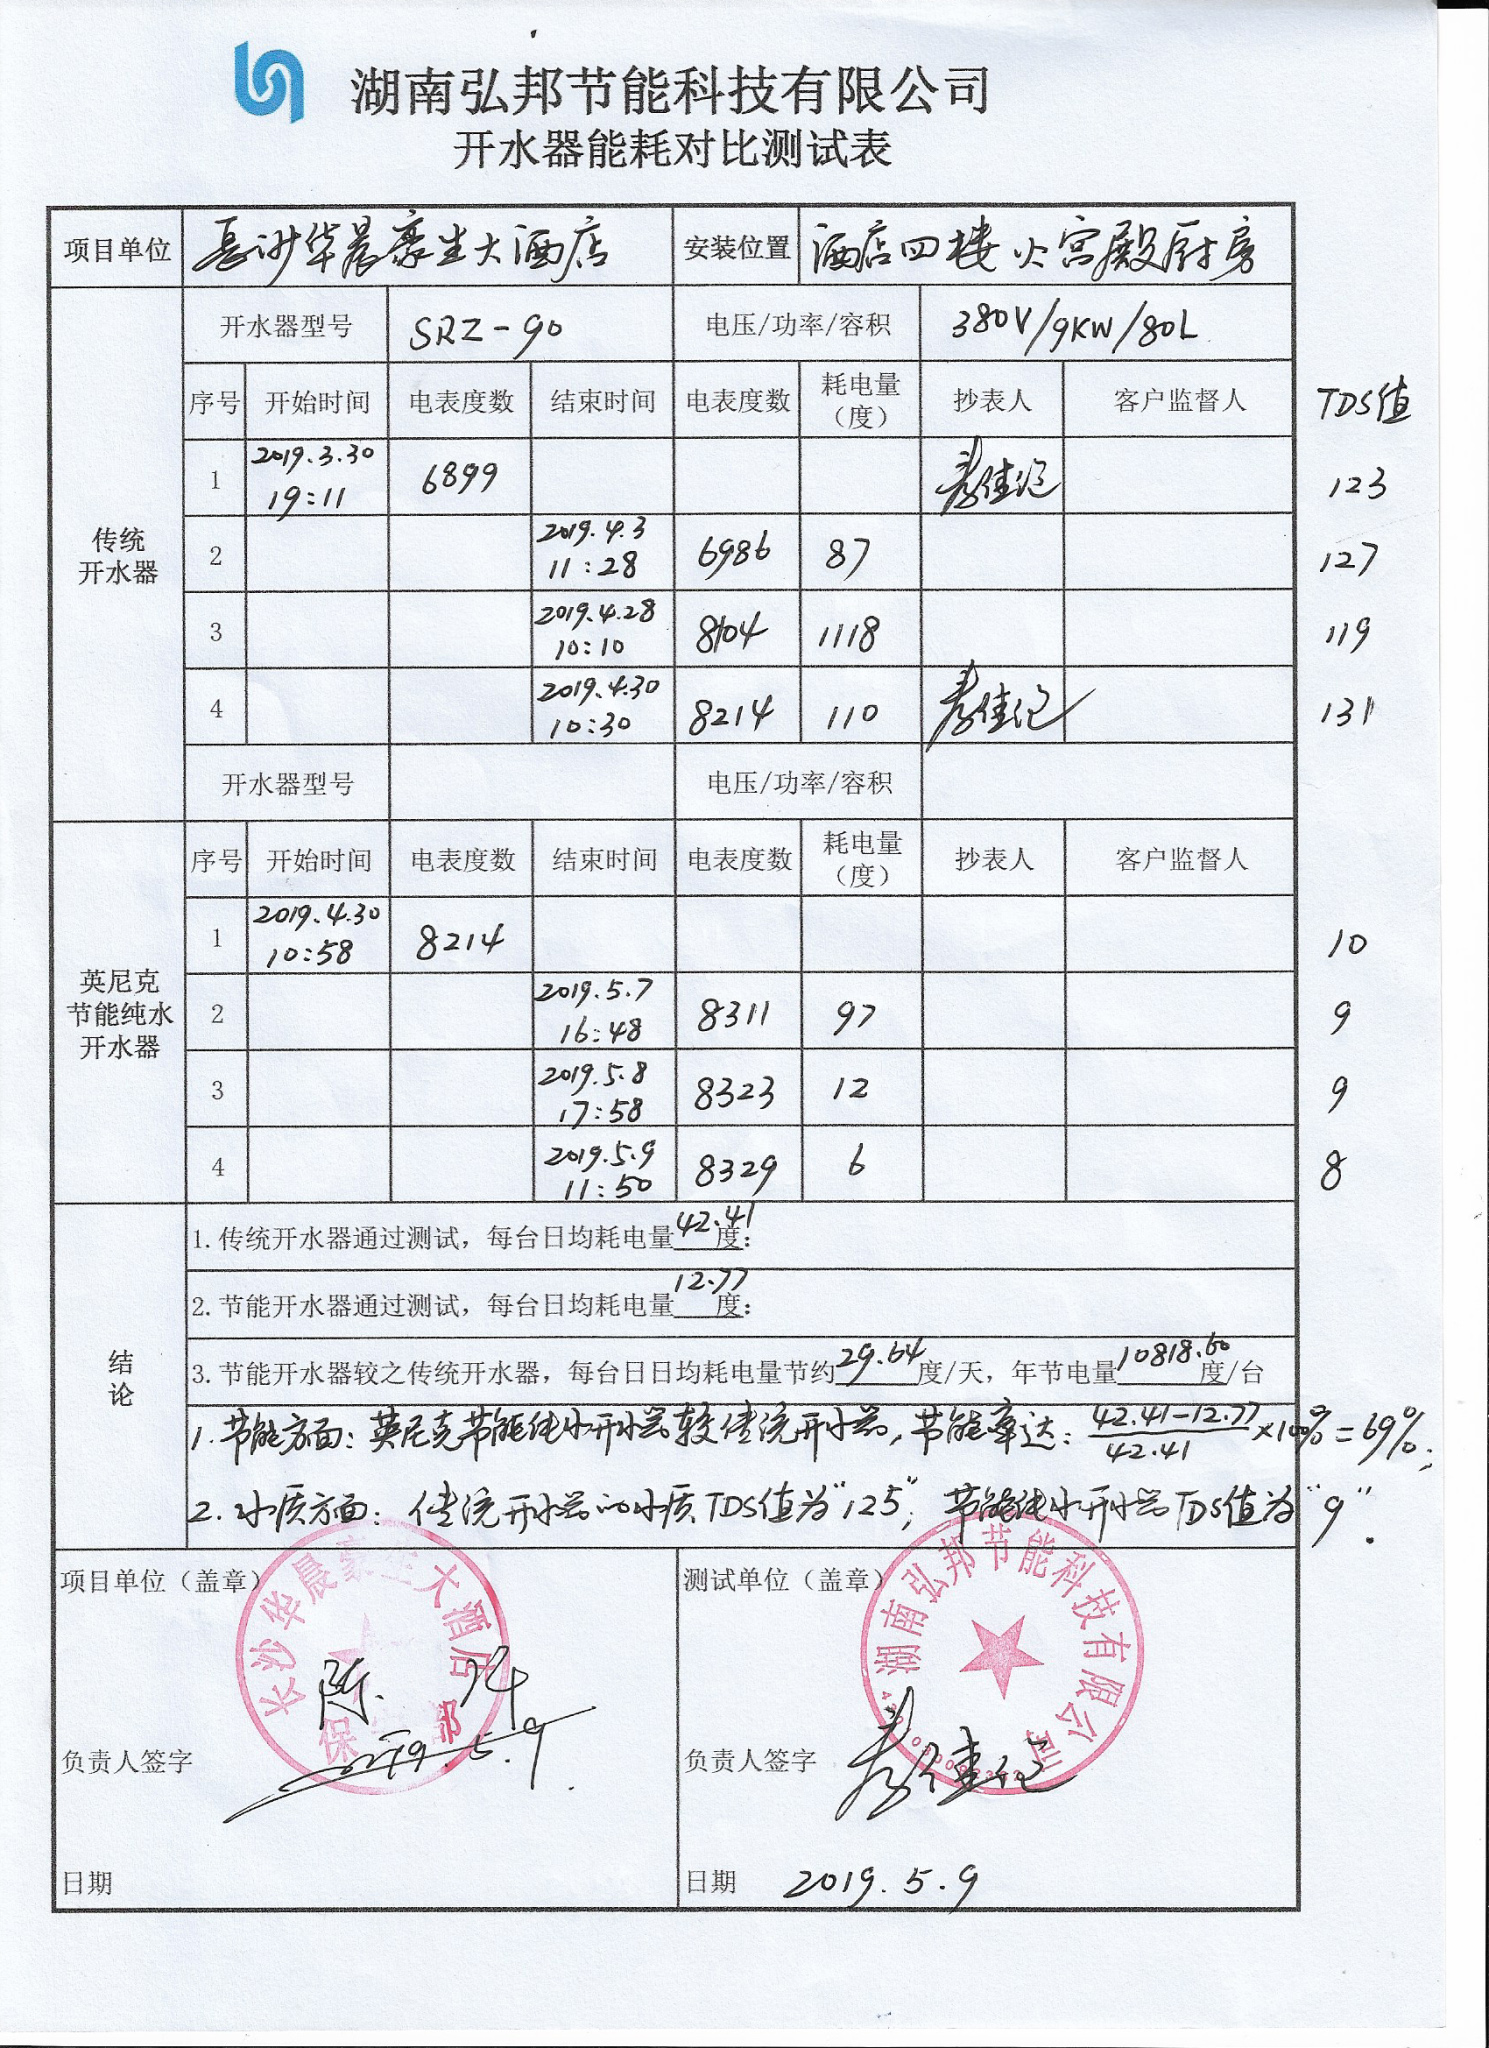 湖南弘邦节能科技有限公司
开水器能耗对比测试表
项目单位 长沙华晨豪生大酒店 安装位置 酒店四楼火宫殿厨房
开水器型号 SRZ-90 电压/功率/容积 380V/9KW/80L
序号 开始时间 电表度数 结束时间 电表度数 耗电量（度） 抄表人 客户监督人 TDS值
传统开水器
1 2019.3.30 19:11 6899 123
2 2019.4.3 11:28 6986 87 127
3 2019.4.28 10:10 8104 1118 119
4 2019.4.30 10:30 8214 110 131
开水器型号 电压/功率/容积
序号 开始时间 电表度数 结束时间 电表度数 耗电量（度） 抄表人 客户监督人
英尼克节能纯水开水器
1 2019.4.30 10:58 8214 10
2 2019.5.7 16:48 8311 97 9
3 2019.5.8 17:58 8323 12 9
4 2019.5.9 11:50 8329 6 8
结论
1.传统开水器通过测试，每台日均耗电量42.41度；
2.节能开水器通过测试，每台日均耗电量12.77度；
3.节能开水器较之传统开水器，每台日日均耗电量节约29.64度/天，年节电量10818.60度/台
1.节能方面：英尼克节能纯水开水器较传统开水器，节能率达：42.41-12.77/42.41×100%=69%；
2.水质方面：传统开水器的水质TDS值为"125"；节能纯水开水器TDS值为"9".
项目单位（盖章） 测试单位（盖章）
长沙华晨豪生大酒店
湖南弘邦节能科技有限公司
负责人签字 2019.5.9 负责人签字
日期 日期 2019.5.9